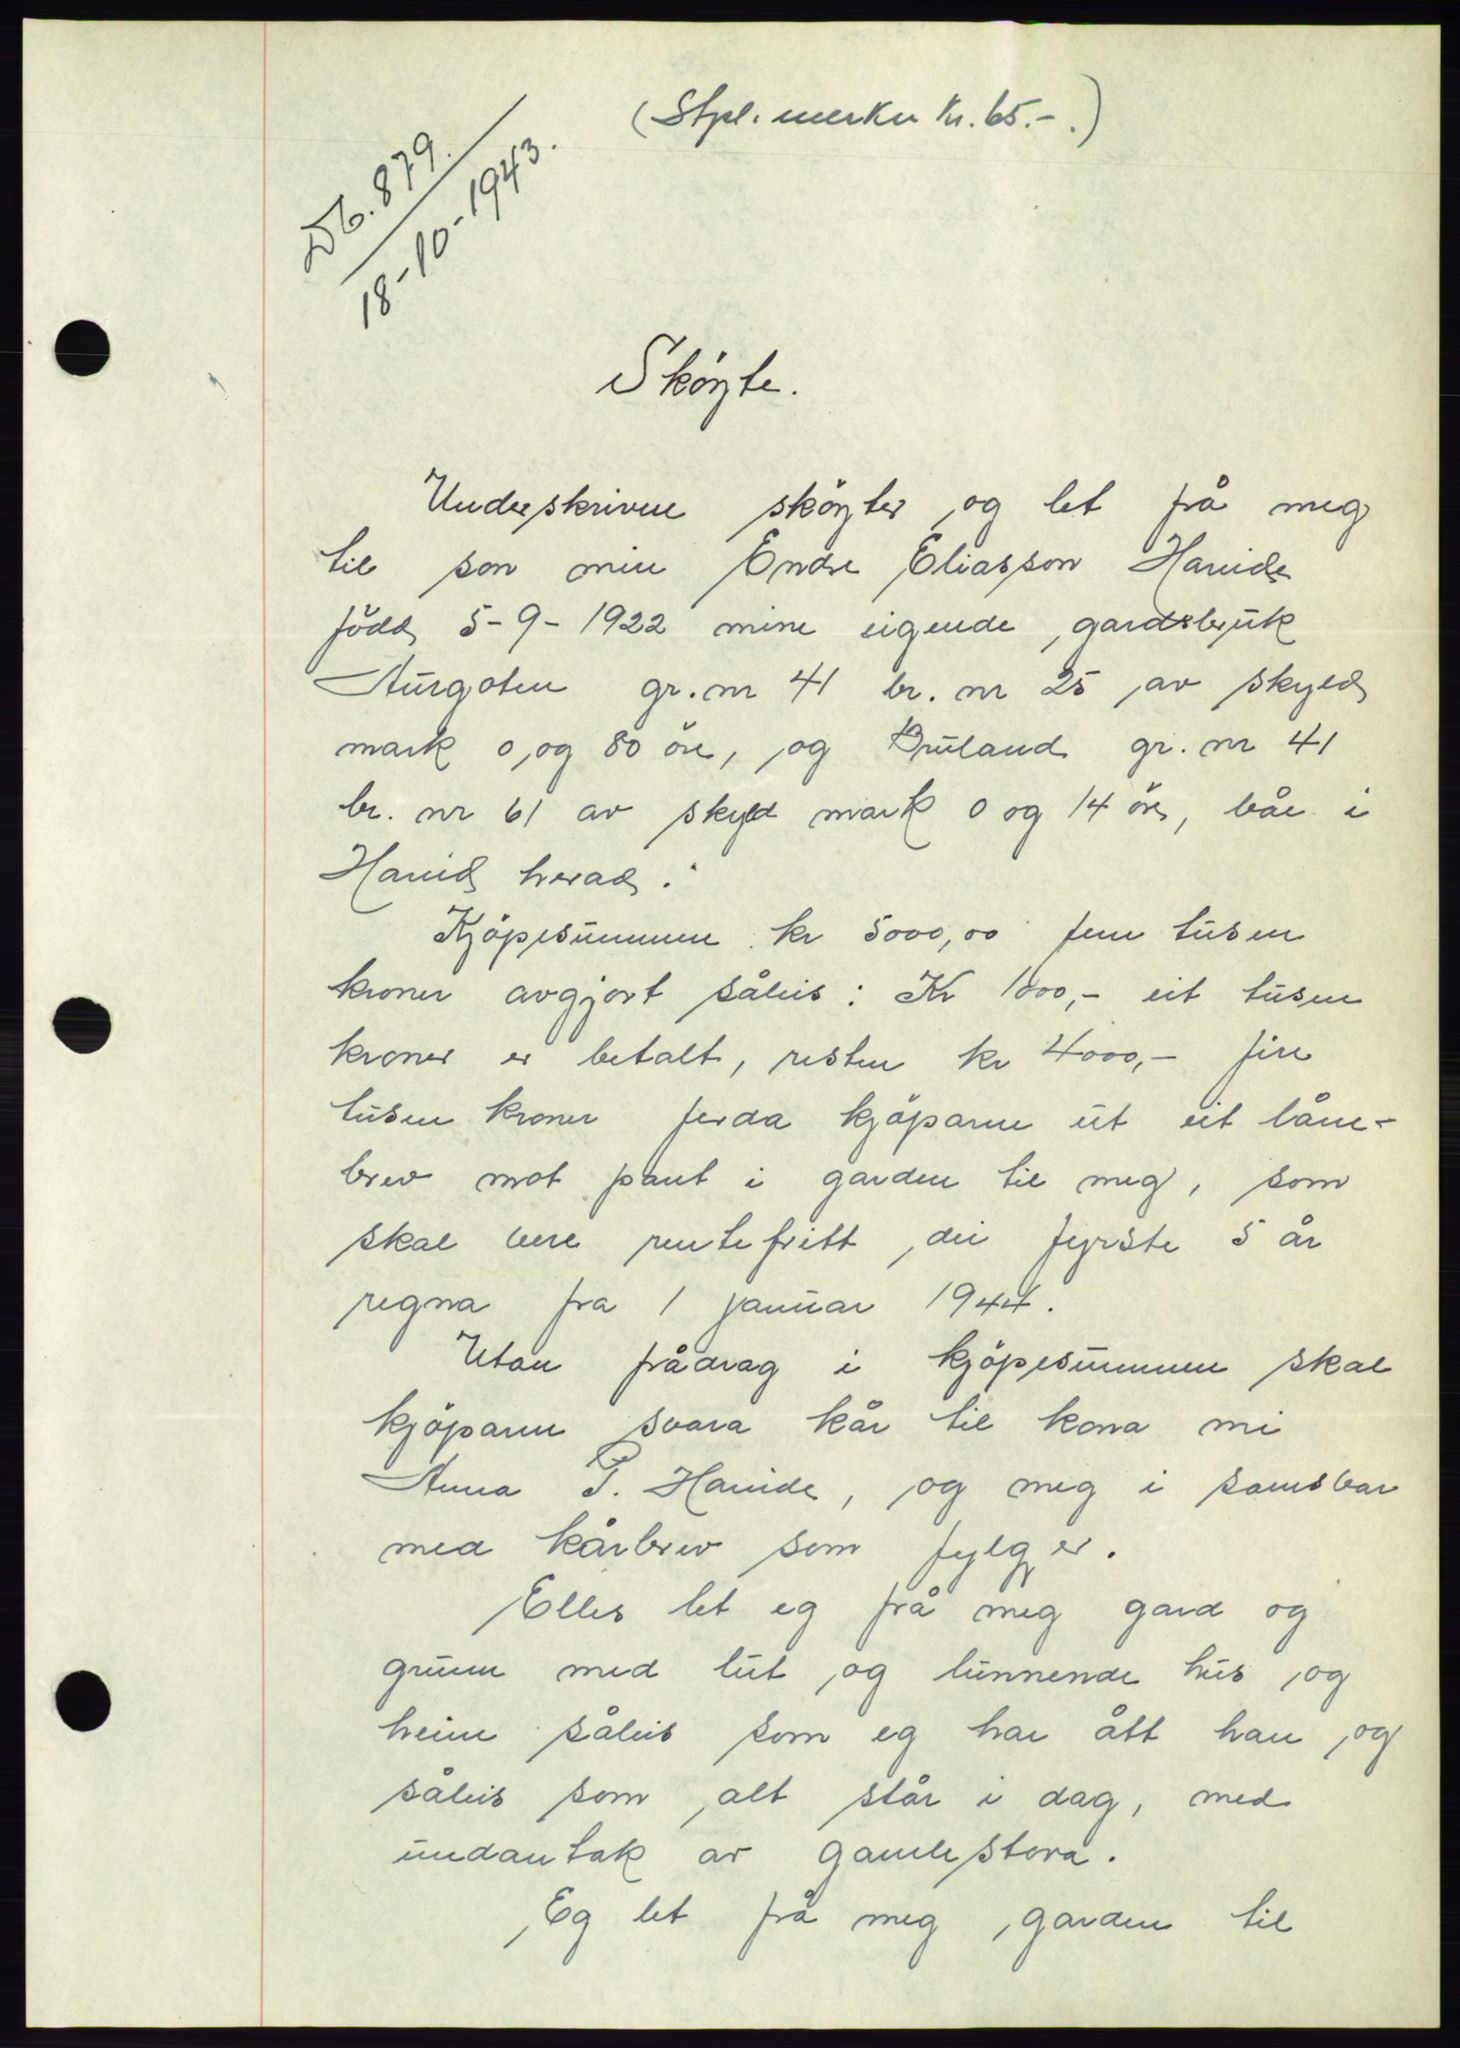 (Stpl. merker Kr. 65.-.)
Db. 879.
18-10-1943.
Sköyte.
Underskrivne sköyter og let frå meg
til son min Endre Eliasson Hareide
född 5-9-1922 mine eigende gardsbruk
gr. nr 41 br. nr 25 av skyld
mark 0 og 80 öre, og Bruland gr. nr 41
br. nr 61 av skyld mark 0 og 14 öre, båe i
Hareid herad.
Kjöpesummen kr 5000,00 fem tusen
kroner avgjort såleis: Kr 1000,- eit tusen
kroner er betalt, resten kr 4000,- fire
tusen kroner ferda kjöparen ut eit låne-
brev mot pant i garden til meg, som
skal vere rentefritt dei fyrste 5 år
regna fra 1 januar 1944.
Utan frådrag i kjöpesummen skal
kjöparen svara kår til kona mi
Anna P. Hareide, og meg i samsvar
med kårbrev som fylgjer.
Elles let eg frå meg gard og
grunn med lut og lunnende hus og
heim såleis som eg har ått han og
såleis som alt står i dag, med
undantak av gamlestova.
Eg let frå meg garden til